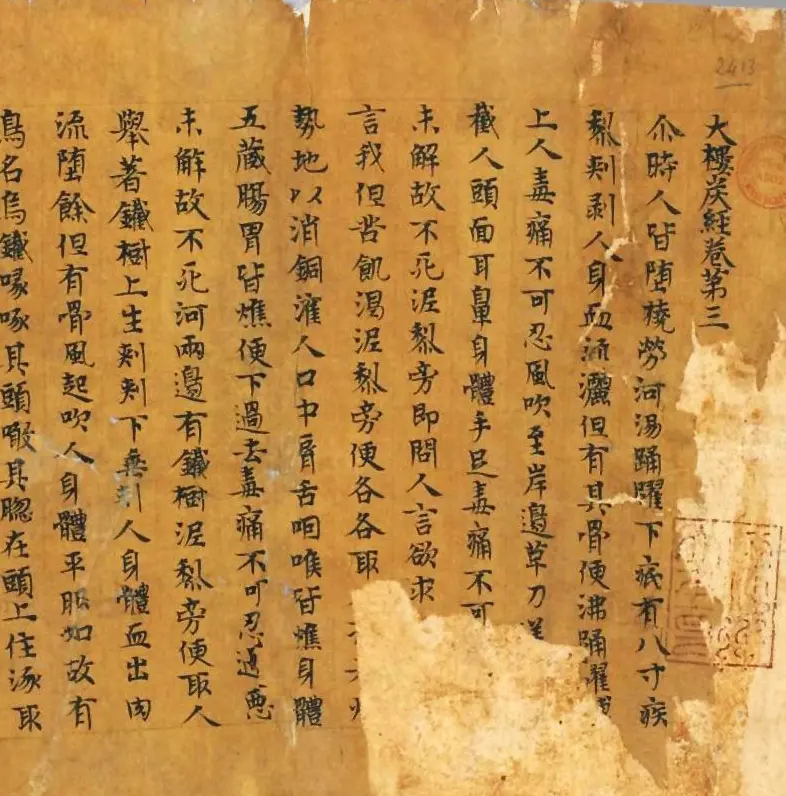 2413
大樓炭經卷第三
尒時人皆墮橈勞河湯踊躍下底有八寸疾
梨刾剥人身血流灑但有其骨便沸踊躍
上人毒痛不可忍風吹至岸邊草刀
截人頭面耳鼻身體手足毒痛不可
未解故不死泥梨旁即問人言欲求
言我但苦飢渴泥梨旁便各各取
勢地以消銅灌人口中脣舌咽喉皆燋身體
五藏腸胃皆燋便下過去毒痛不可忍過惡
未解故不死河兩邊有鐵樹泥梨旁便取人
舉著鐵樹上生刾刾下垂刾人身體血出肉
流墮餘但有骨風起吹人身體平服如故有
鳥名烏鐵喙啄其頭噉其𦛁在頭上住啄取